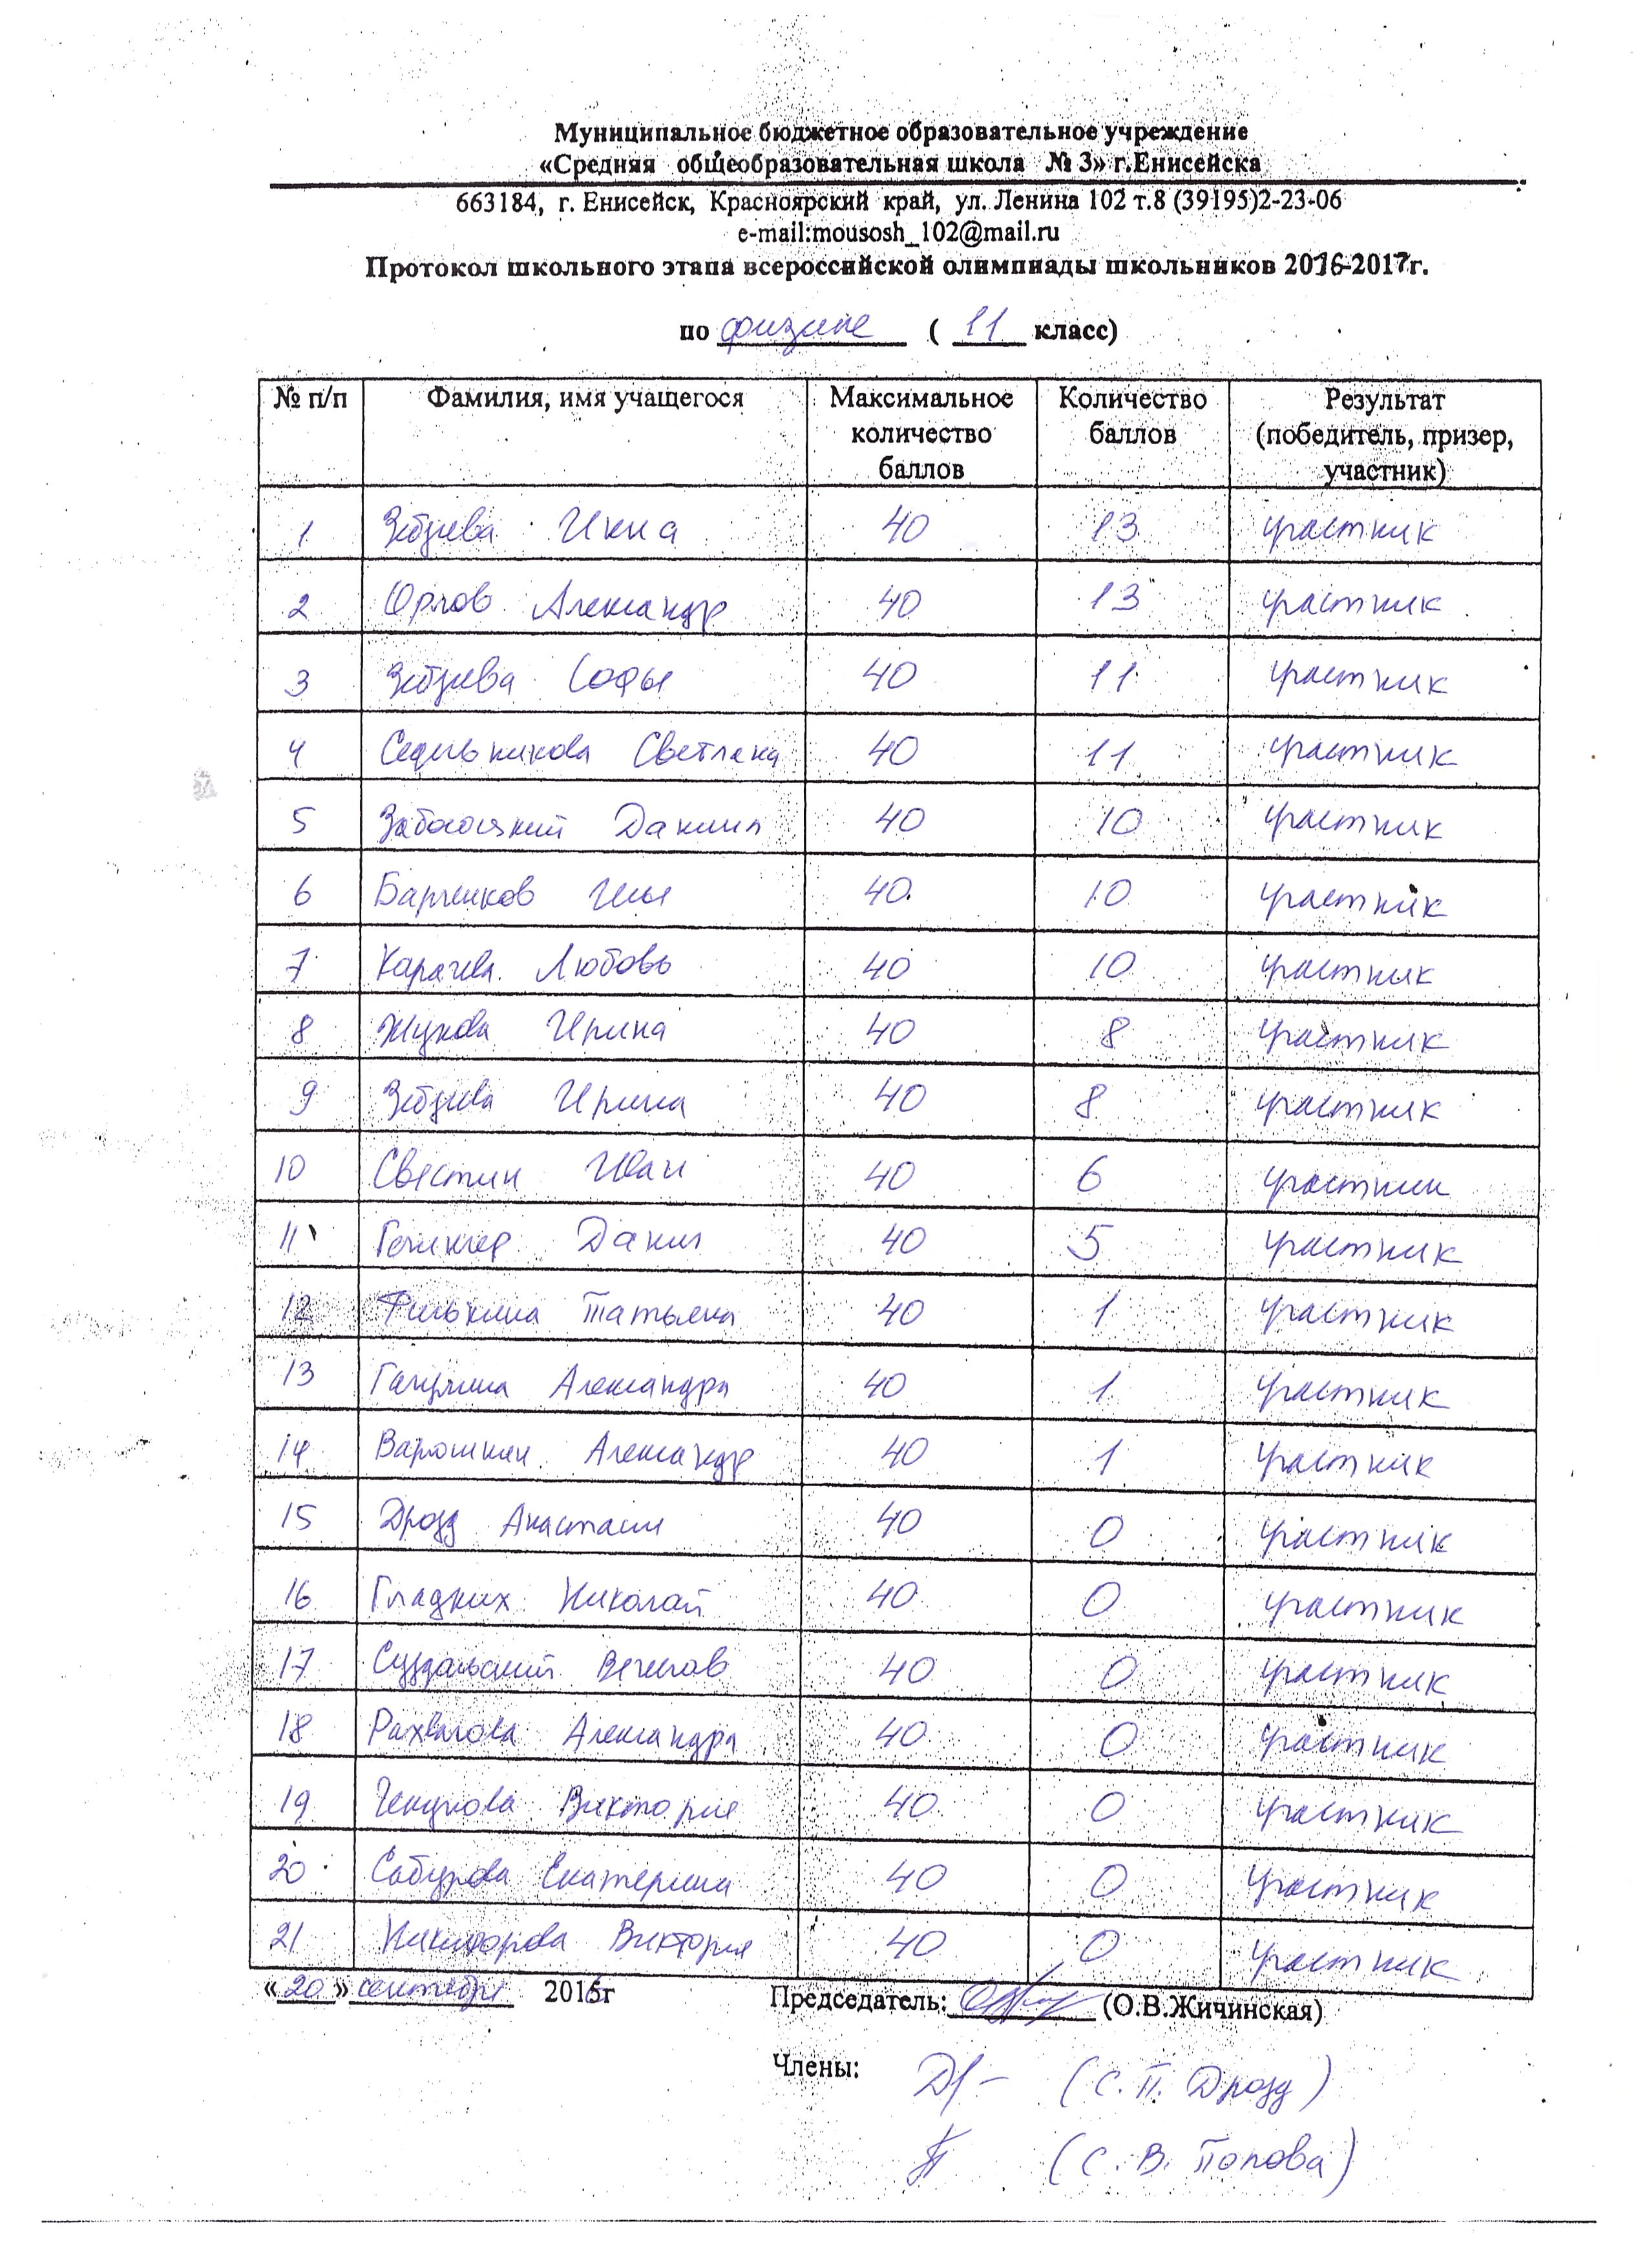 Муниципальное бюджетное образовательное учреждение
«Средняя общеобразовательная школа № 3» г.Енисейска
663184, г. Енисейск, Красноярский край, ул. Ленина 102 т.8 (39195)2-23-06
e-mail:mousosh_102@mail.ru
Протокол школьного этапа всероссийской олимпиады школьников 2016-2017г.
по физике ( 11 класс)
№ п/п Фамилия, имя учащегося Максимальное количество баллов Количество баллов Результат (победитель, призер, участник)
1 Инна 40 13 участник
2 Орлов Александр 40 13 участник
3 Софья 40 11 участник
4 Седельникова Светлана 40 11 участник
5 Даниил 40 10 участник
6 Илья 40 10 участник
7 Любовь 40 10 участник
8 Жукова Ирина 40 8 участник
9 Ирина 40 8 участник
10 Иван 40 6 участник
11 Данил 40 5 участник
12 Филькина Татьяна 40 1 участник
13 Александра 40 1 участник
14 Александр 40 1 участник
15 Дрозд Анастасия 40 0 участник
16 Гладких Николай 40 0 участник
17 Суздальский 40 0 участник
18 Александра 40 0 участник
19 Виктория 40 0 участник
20 Сабурова Екатерина 40 0 участник
21 Никифорова Виктория 40 0 участник
«20» сентября 2016г Председатель: (О.В.Жичинская)
Члены: (С. П. Дрозд)
(С. В. Попова)